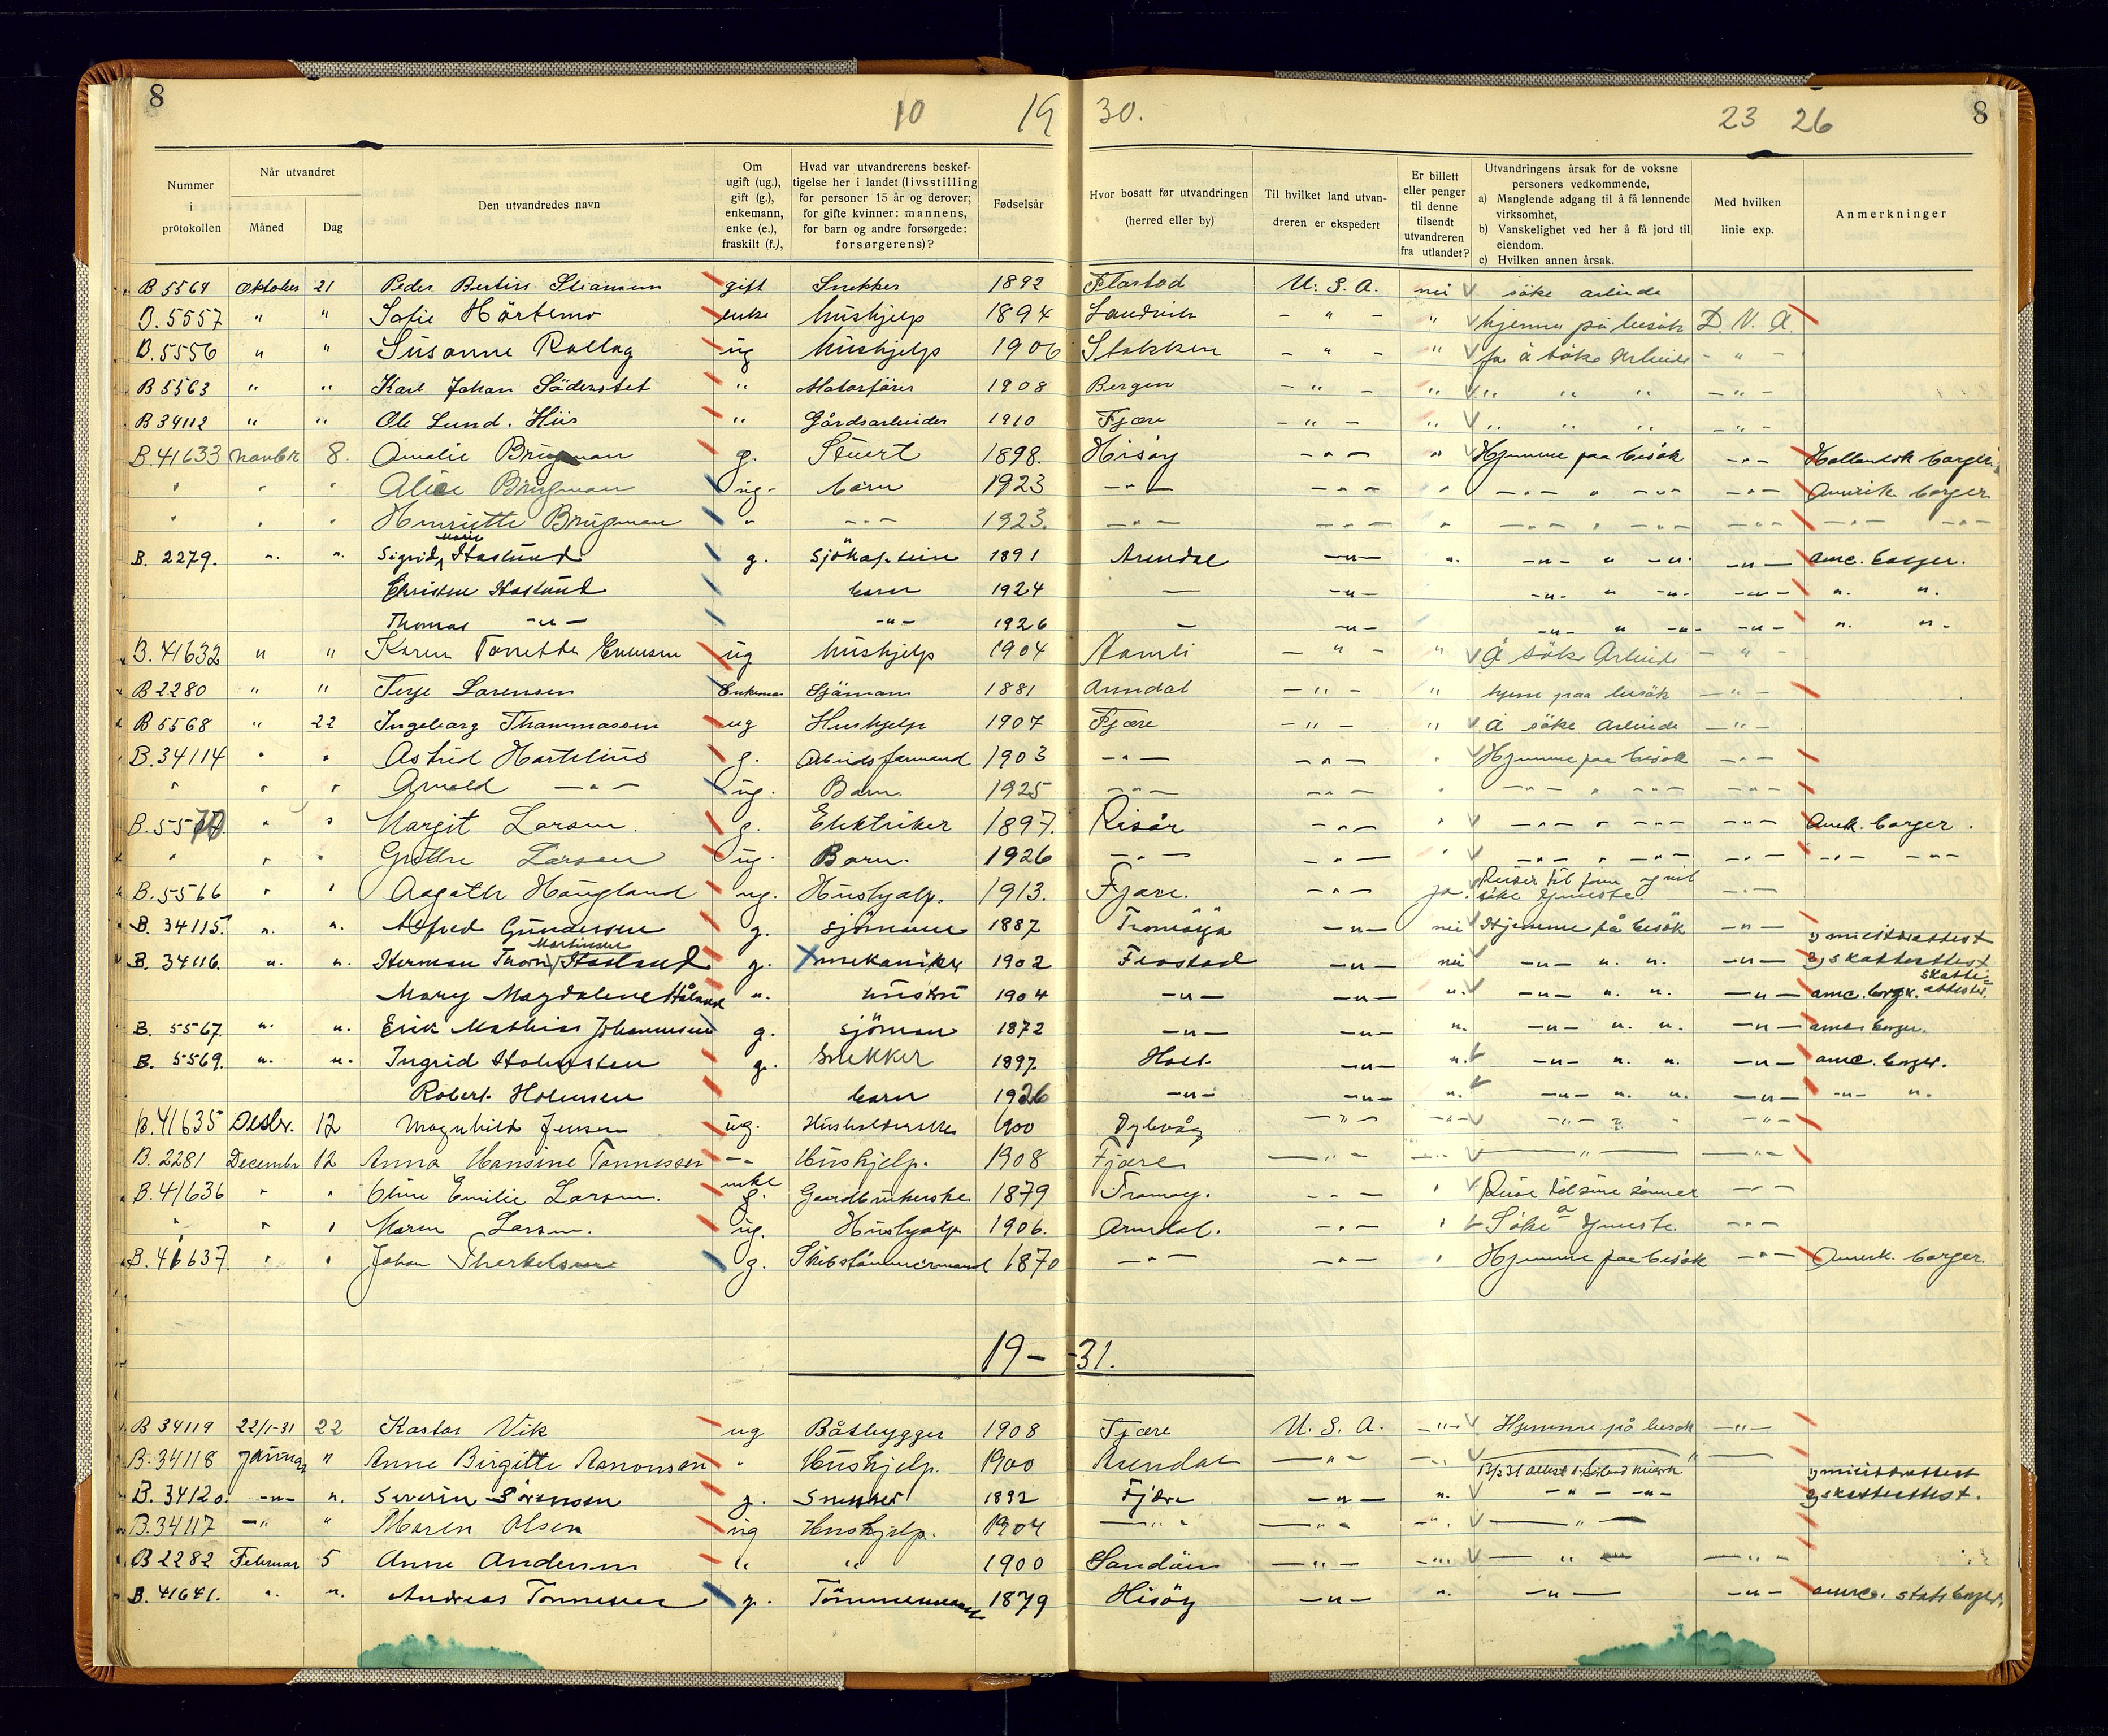 8
10
19
30.
23 26
8
Nummer i protokollen
Når utvandret
Måned
Dag
Den utvandredes navn
Om ugift (ug.), gift (g.), enkemann, enke (e.), fraskilt (f.),
Hvad var utvandrerens beskeftigelse her i landet (livsstilling for personer 15 år og derover; for gifte kvinner: mannens, for barn og andre forsørgede: forsørgerens)?
Fødselsår
Hvor bosatt før utvandringen (herred eller by)
Til hvilket land utvandreren er ekspedert
Er billett eller penger til denne tilsendt utvandreren fra utlandet?
Utvandringens årsak for de voksne personers vedkommende,
a) Manglende adgang til å få lønnende virksomhet,
b) Vanskelighet ved her å få jord til eiendom.
c) Hvilken annen årsak.
Med hvilken linie exp.
Anmerkninger
B 5564 Oktober 21 Peder Bertin gift Snekker 1892 Flostad U. S. A. nei söke arbeide
B. 5557 " " Sofie enke hushjelp 1894 Landvik - " - " hjemme på besök D. N. A.
B. 5556 " " Susanne Rollag ug hushjelp 1906 Stokken - " - " for å söke Arbeide - " -
B 5563 " " Karl Johan " Motorförer 1908 Bergen - " - " " " " - " -
B 34112 " " Ole Lund. Hiis " Gårdsarbeider 1910 Fjære - " - " " " " - " -
B. 41633 Novbr 8. Amalie Brugman g. Stuert 1898. Hisöy - " - " Hjemme paa besök - " - Hollandsk borger
" " " Alice Brugman ug. barn 1923 - " - - " - " - " - " - " - - " - Amerik borger
" " " Henriette Brugman " - " - 1923. - " - - " - " - " - " - " - - " - - " - - " -
B. 2279. " " Sigrid Marie Haslund g. Sjökaptein 1891 Arendal - " - " - " - " - " - - " - ame. borger.
Christen Haslund barn 1924 - - " - - " - " - " - - " - " "
Thomas - " - - " - 1926 - - " - - " - " - " - - " - " "
B. 41632 " " Karen Tonette Evensen ug hushjelp 1904 Aamli - " - " Å söke Arbeide - " -
B 2280 " " Terje Sorensen Enkeman Sjömann 1881 Arendal - " - " hjem paa besök - " -
B 5568 " 22 Ingeborg Thommassen ug Hushjelp 1907 Fjære - " - " Å söke Arbeide - " -
B. 34114 " " Astrid Hortelius g. Arbeidsformand 1903 - " - - " - " Hjemme paa besök - " -
" " " Arnold - " - ug. Barn. 1925 - " - - " - " - " - " - " - - " -
B. 5570 " " Margit Larsen. g. Elektriker 1897. Risör - " - " - " - " - " - - " - Amk. borger.
" " " Grethe Larsen ug. Barn. 1926 - " - - " - " - " - " - " - - " - - " - - " -
B. 5566 " " Aagoth Haugland ug. Hushjalp. 1913. Fjære. - " - ja. Reiser til fam og vil söke tjeneste. - " -
B. 34115. " " Alfred Gundersen g. sjömann 1887 Tromöya - " - nei Hjemme på besök - " - 1) militærattest
B. 34116. " " Herman Thom Martinsen Haaland g. mekaniker 1902 Flostad - " - nei - " - " " - " - 2) skatteattest
Mary Magdalene Håland " hustru 1904 - " - - " - " - " - " " - " - ame. borger. skatteattest.
B. 5567. " " Erik Mathias Johannesen g. sjöman 1872 - " - - " - " - " - " " - " - ame. borger.
B. 5569. " " Ingrid Holmsten g. Snekker 1897 Holt - " - " - " - " " - " - ame. borger.
Robert Holmsen barn 1926 - " - - " - " - " - " " - " - - " - "
B. 41635 Desbr. 12 Magnhild Jensen ug. 1900 Dybvåg - " - - " - - " - " - " -
B. 2281 Decembr 12 Anna Hansine Tonnessen - " - Hushjelp. 1908 Fjære - " - - " - - " - - " -
B. 41636 " " Oline Emilie Larsen. enke g. Gaardbrukerske 1879 Tromöy. - " - " Reise til sine sönner - " -
" " " Maren Larsen. ug. Hushjalp 1906. Arendal. - " - " Söke a tjeneste. - " -
B. 41637 " " Johan Therkelsen g. Skibstömmermand 1870 - " - - " - " Hjemme paa besök - " - Amerk. borger.
19 - - 31.
B 34119 22/1-31 22 Kastor Vik ug Båtbygger 1908 Fjære U. S. A. - " - Hjemme på besök - " -
B. 34118 Januar " Anne Birgitte Aanonsen " Hushjelp. 1900 Arendal - " - - " - "
B. 34120. - " - " Severin Sörensen g. Snekker 1892 Fjære - " - " - " - - " - 1) militærattest 2) skatteattest.
B. 34117 - " " Maren Olsen ug Hushjelp. 1904 - " - - " - - " - - " -
B 2282 Februar 5 Anne Andersen " " 1900 Söndöen - " - - " - - " - - " -
B. 41641. " " Andreas Tönnesen g. Tömmermand 1879 Hisöy - " - " - " - - " - amer. statsborger.